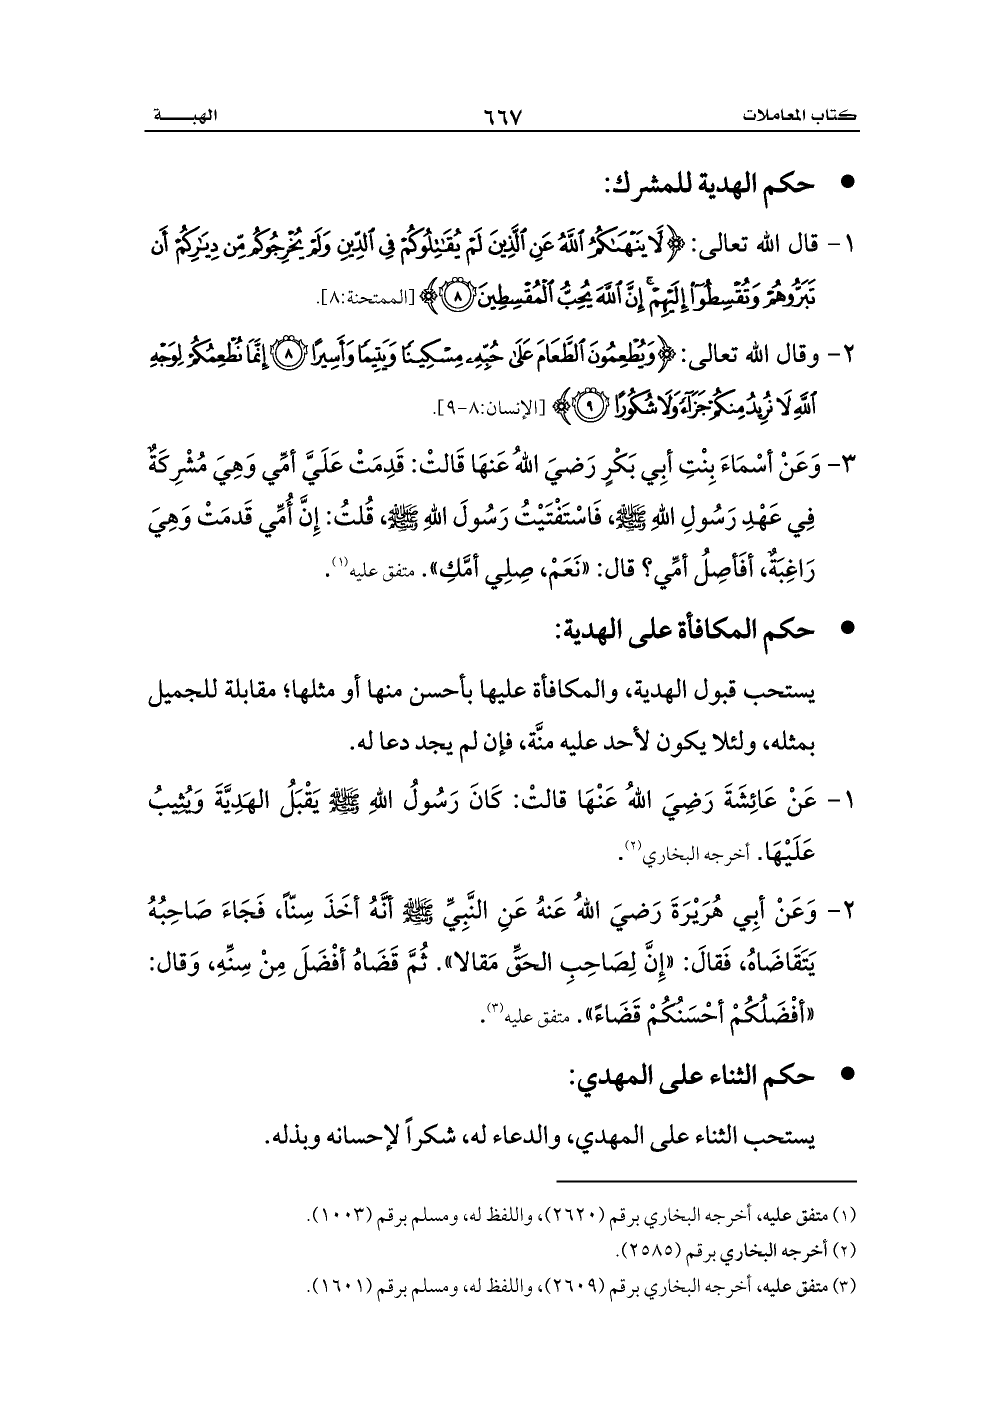 كتاب المعاملات ٦٦٧ الهبـــــة
● حكم الهدية للمشرك:
١- قال الله تعالى: ﴿لَّا يَنْهَىٰكُمُ ٱللَّهُ عَنِ ٱلَّذِينَ لَمْ يُقَٰتِلُوكُمْ فِى ٱلدِّينِ وَلَمْ يُخْرِجُوكُم مِّن دِيَٰرِكُمْ أَن
تَبَرُّوهُمْ وَتُقْسِطُوٓا۟ إِلَيْهِمْ ۚ إِنَّ ٱللَّهَ يُحِبُّ ٱلْمُقْسِطِينَ ٨﴾ [الممتحنة:٨].
٢- وقال الله تعالى: ﴿وَيُطْعِمُونَ ٱلطَّعَامَ عَلَىٰ حُبِّهِۦ مِسْكِينًا وَيَتِيمًا وَأَسِيرًا ٨ إِنَّمَا نُطْعِمُكُمْ لِوَجْهِ
ٱللَّهِ لَا نُرِيدُ مِنكُمْ جَزَآءً وَلَا شُكُورًا ٩﴾ [الإنسان:٨-٩].
٣- وَعَنْ أسْمَاءَ بِنْتِ أبِي بَكْرٍ رَضيَ اللهُ عَنهَا قَالتْ: قَدِمَتْ عَلَيَّ أمِّي وَهِيَ مُشْرِكَةٌ
فِي عَهْدِ رَسُولِ اللهِ ﷺ، فَاسْتَفْتَيْتُ رَسُولَ اللهِ ﷺ، قُلتُ: إنَّ أُمِّي قَدمَتْ وَهِيَ
رَاغِبَةٌ، أفَأصِلُ أمِّي؟ قال: «نَعَمْ، صِلِي أمَّكِ». متفق عليه(١).
● حكم المكافأة على الهدية:
يستحب قبول الهدية، والمكافأة عليها بأحسن منها أو مثلها؛ مقابلة للجميل
بمثله، ولئلا يكون لأحد عليه منَّة، فإن لم يجد دعا له.
١- عَنْ عَائِشَةَ رَضِيَ اللهُ عَنْهَا قالتْ: كَانَ رَسُولُ اللهِ ﷺ يَقْبَلُ الهَدِيَّةَ وَيُثِيبُ
عَلَيْهَا. أخرجه البخاري(٢).
٢- وَعَنْ أبِي هُرَيْرَةَ رَضيَ اللهُ عَنهُ عَنِ النَّبِيِّ ﷺ أنَّهُ أخَذَ سِنّاً، فَجَاءَ صَاحِبُهُ
يَتَقَاضَاهُ، فَقالَ: «إنَّ لِصَاحِبِ الحَقِّ مَقالا». ثُمَّ قَضَاهُ أفْضَلَ مِنْ سِنِّهِ، وَقال:
«أفْضَلُكُمْ أحْسَنُكُمْ قَضَاءً». متفق عليه(٣).
● حكم الثناء على المهدي:
يستحب الثناء على المهدي، والدعاء له، شكراً لإحسانه وبذله.
(١) متفق عليه، أخرجه البخاري برقم (٢٦٢٠)، واللفظ له، ومسلم برقم (١٠٠٣).
(٢) أخرجه البخاري برقم (٢٥٨٥).
(٣) متفق عليه، أخرجه البخاري برقم (٢٦٠٩)، واللفظ له، ومسلم برقم (١٦٠١).